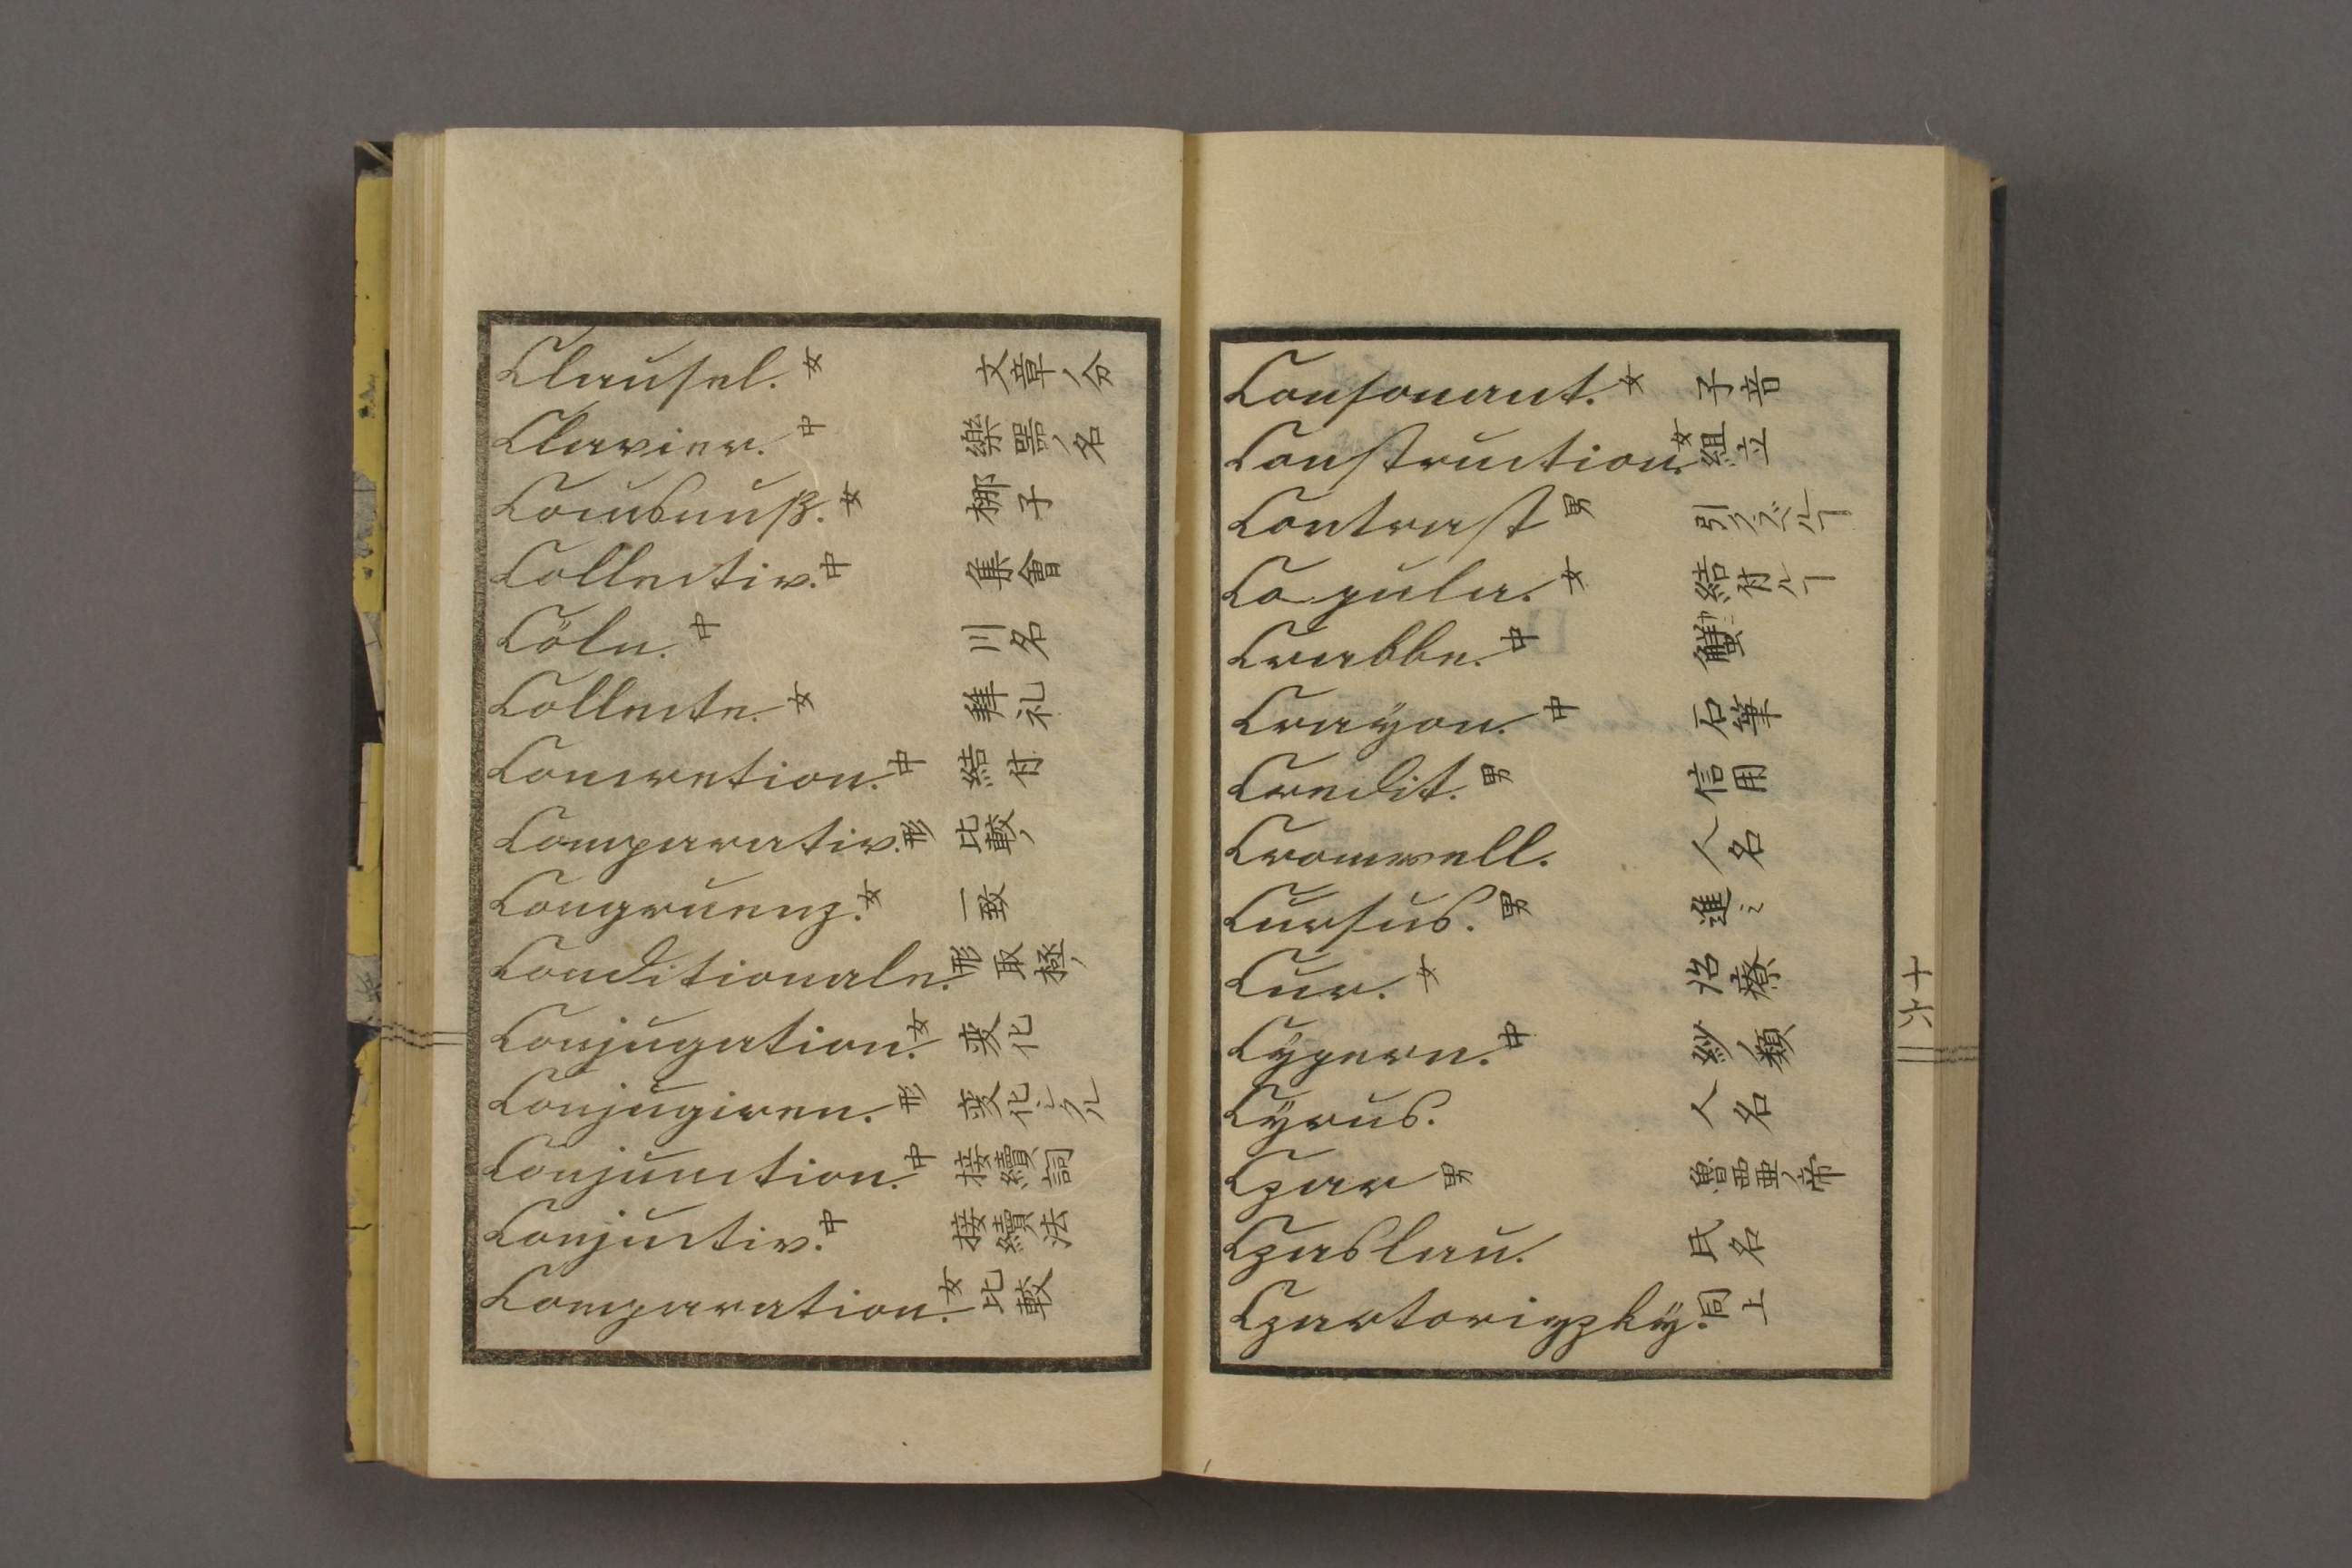 Clausel. 女 文章ノ分
Clavier. 中 樂噐ノ名
Cocusnuß. 女 梛子
Collectiv. 中 集會
Cöln. 中 川名
Collecte. 女 拜礼
Concretion. 中 結付
Comparativ. 形 比較ノ
Congruenz. 女 一致
Conditionale. 形 取極ノ
Conjugation. 女 変化
Conjugiren. 形 変化シタル
Conjunction. 中 接續詞
Conjuctiv. 中 接續法
Comparation. 女 比較
Consonant. 女 子音
Construction. 女 組立
Contrast 男 引クラブルヿ
Copula. 女 結付ルヿ
Crabbe. 中 蟹
Crayon. 中 石筆
Credit. 男 信用
Cromwell. 人名
Cursus. 男 進ミ
Cur. 女 治療
Cypern. 中 紗ノ類
Cyrus. 人名
Czar 男 魯西亜ノ帝
Czaslau. 氏名
Czartorigzky. 同上
十六